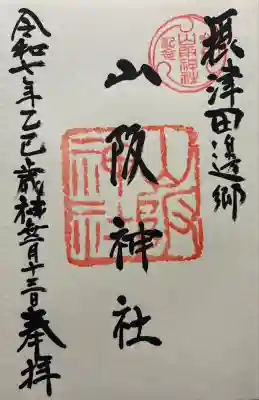 摂津田邊郷
山阪神社
山阪神社
令和七年乙巳歳神無月十三日奉拝